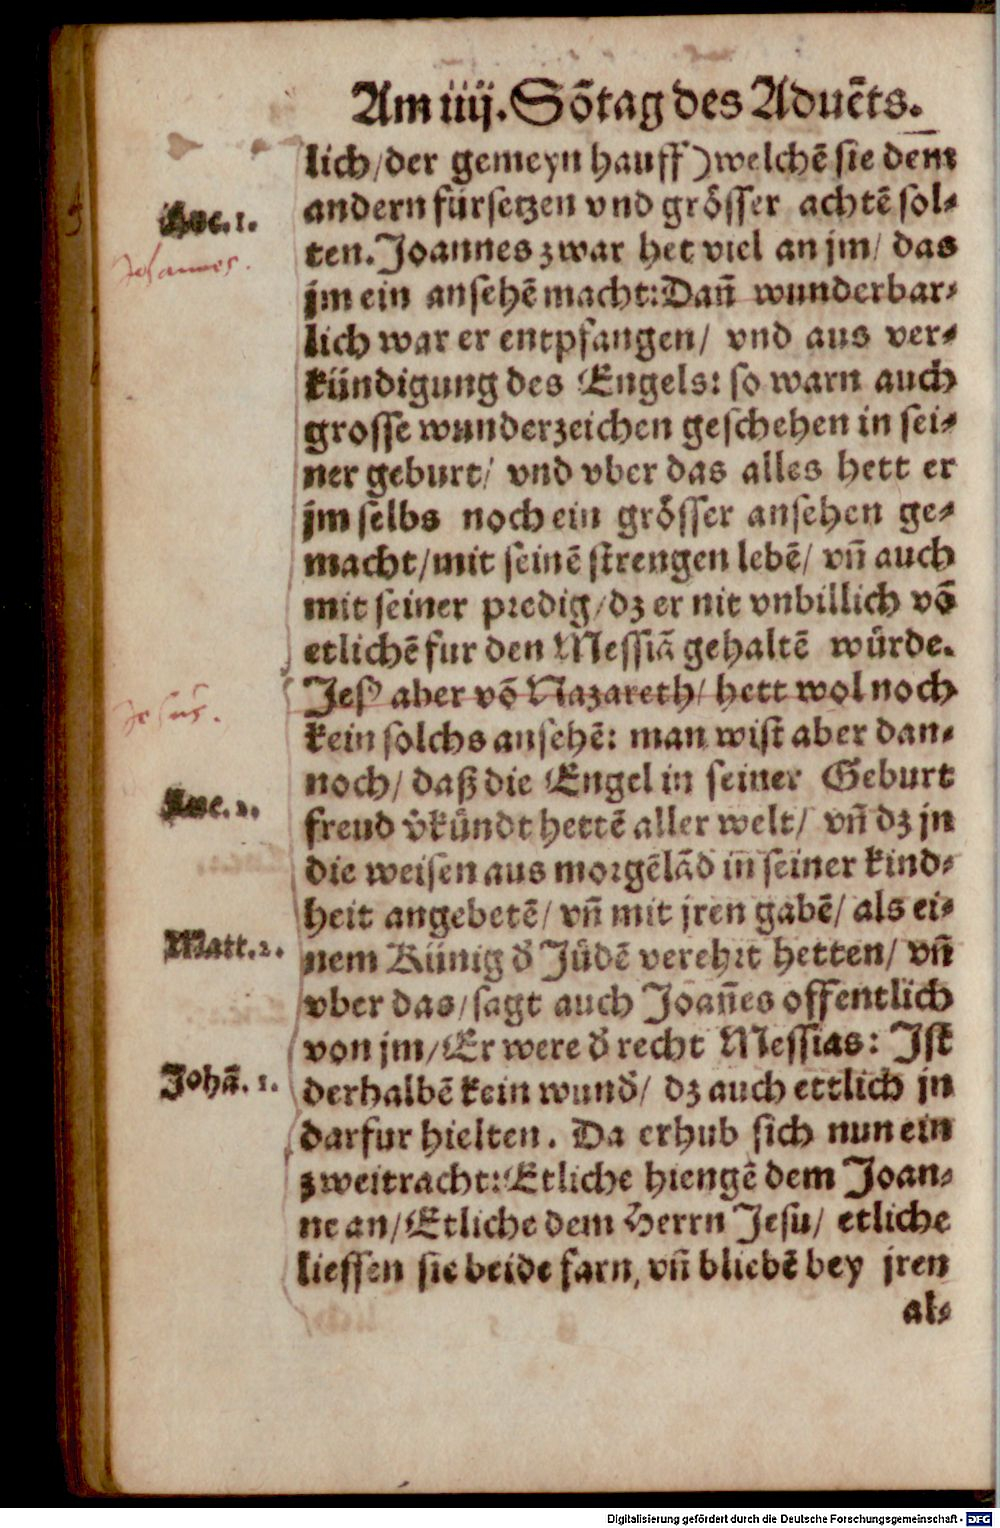 Am iiij. Sõtag des Aduẽts.
lich/der gemeyn hauff) welchẽ sie dem
andern fürsetzen vnd grösser achtẽ sol⸗
Luc. 1.
ten. Joannes zwar het viel an jm/ das
Johannes.
jm ein ansehẽ macht: Dañ wunderbar⸗
lich war er entpfangen/ vnd aus ver⸗
kündigung des Engels: so warn auch
grosse wunderzeichen geschehen in sei⸗
ner geburt/ vnd vber das alles hett er
jm selbs noch ein grösser ansehen ge⸗
macht/mit seinẽ strengen lebẽ/ vñ auch
mit seiner predig/dz er nit vnbillich võ
etlichẽ fur den Messiã gehaltẽ würde.
Jesꝰ aber võ Nazareth/ hett wol noch
Jesus.
kein solchs ansehẽ: man wist aber dan⸗
noch/ daß die Engel in seiner Geburt
Luc. 2.
freud v̂kündt hettẽ aller welt/ vñ dz jn
die weisen aus morgẽlãd in seiner kind⸗
heit angebetẽ/ vñ mit jren gabẽ/ als ei⸗
Matt. 2.
nem Künig d̂ Jüdẽ verehrt hetten/ vñ
vber das/sagt auch Joañes offentlich
von jm/Er were d̂ recht Messias: Ist
Johã. 1.
derhalbẽ kein wund̂/ dz auch ettlich jn
darfur hielten. Da erhub sich nun ein
zweitracht: Etliche hiengẽ dem Joan⸗
ne an/Etliche dem Herrn Jesu/ etliche
liessen sie beide farn, vñ bliebẽ bey jren
al⸗
Digitalisierung gefördert durch die Deutsche Forschungsgemeinschaft - DFG